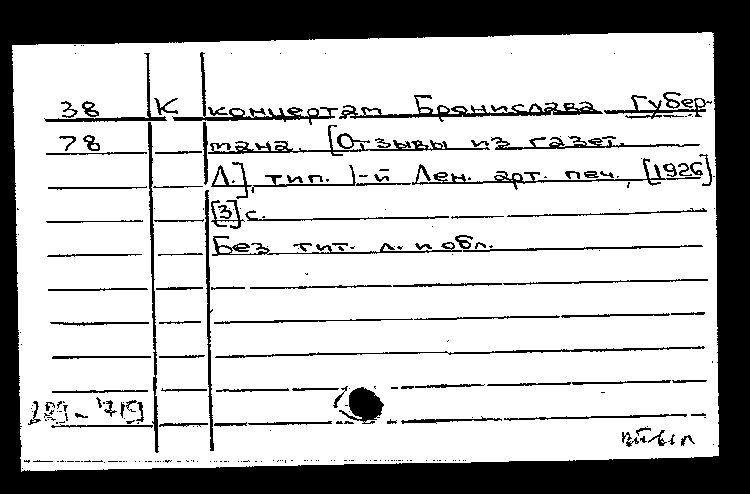 38 К концертам Бронислава Губер-
78 мана. [Отзывы из газет.
Л.], тип. 1-й Лен. арт. печ., [1926]
[3] с.
Без тит. л. и обл.
289-719